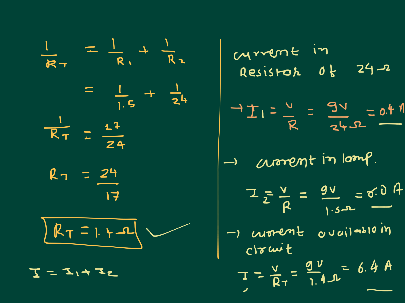 1/RT = 1/R1 + 1/R2
= 1/1.5 + 1/24
1/RT = 17/24
RT = 24/17
RT = 1.4 Ω
I = I1 + I2
current in
Resistor of 24Ω
→ I1 = V/R = 9V/24Ω = 0.4 A
→ current in lamp.
I2 = V/R = 9V/1.5Ω = 6.0 A
→ current available in
circuit
I = V/RT = 9V/1.4Ω = 6.4 A